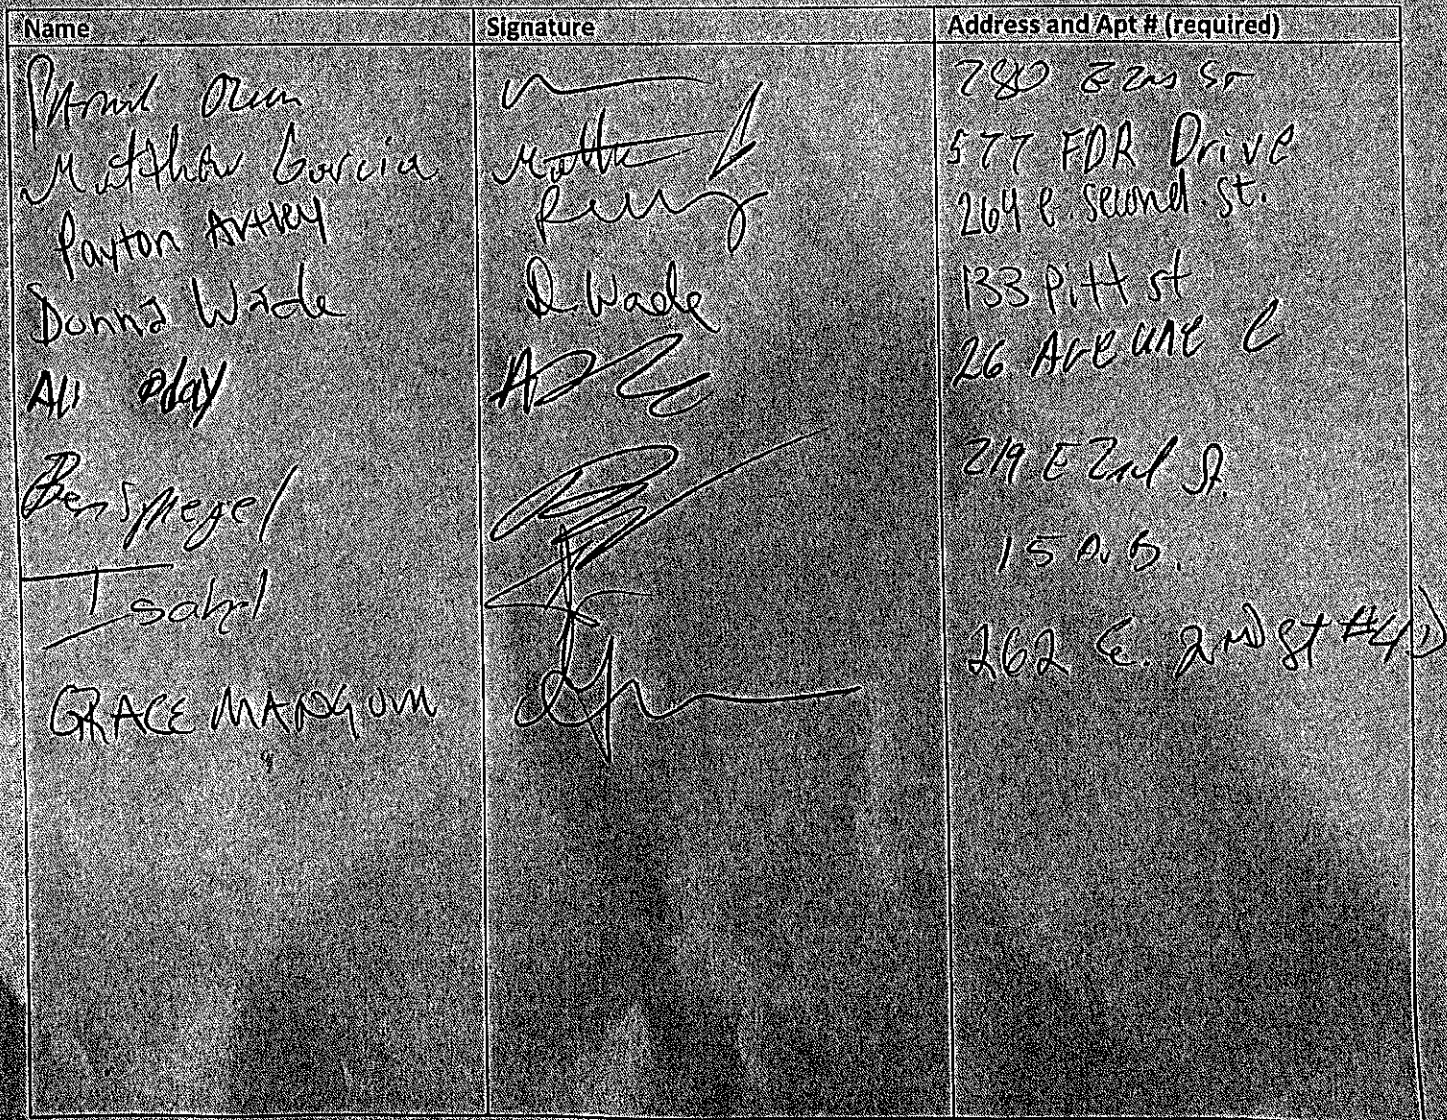 Name Signature Address and Apt # (required)
280 E 2nd St
Matthew Garcia 577 FDR Drive
Payton 264 e. second. st.
Donna Wade D Wade 133 Pitt st
Ali 26 Avenue C
Ben Spiegel 219 E 2nd St.
Isabel 15 Av B.
GRACE MANGUM 262 E. 2ND St #4D